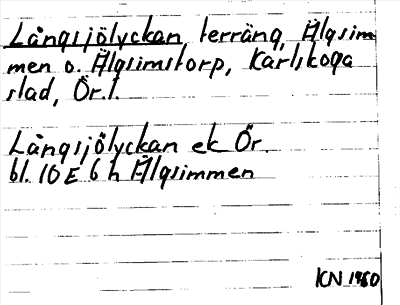 Långsjölyckan, terräng, Älgsim-
men o. Älgsimstorp, Karlskoga
stad, Ör.l.
Långsjölyckan ek Ör.
bl. 10 E 6 h Älgsimmen
KN 1960